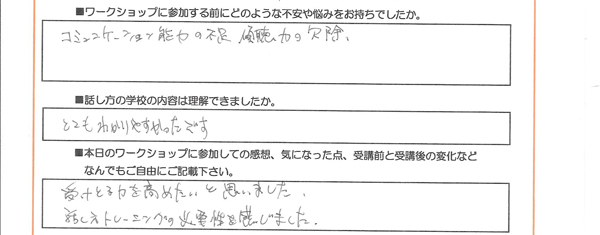 ■ワークショップに参加する前にどのような不安や悩みをお持ちでしたか。
コミュニケーション能力の不足 傾聴力の欠除、
■話し方の学校の内容は理解できましたか。
とてもわかりやすかったです
■本日のワークショップに参加しての感想、気になった点、受講前と受講後の変化など
なんでもご自由にご記載下さい。
受けとる力を高めたいと思いました、
話し方トレーニングの必要性を感じました。